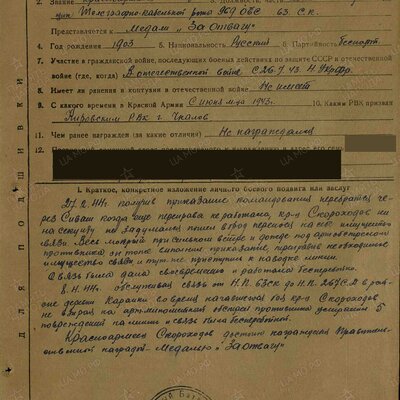 2. Звание Красноармеец 3. Должность, часть
щик Телеграфно-кабельной роты 909 ОБС 63. С.К.
Представляется к медали "За Отвагу"
4. Год рождения 1903 5. Национальность Русский 6. Партийность беспарт.
7. Участие в гражданской войне, последующих боевых действиях по защите СССР и отечественной
войне (где, когда) В отечественной войне С 26.7.43 4 Укрфр.
8. Имеет ли ранения и контузии в отечественной войне Не имеет
9. С какого времени в Красной Армии С июня м-ца 1943г. 10. Каким РВК призван
Кировским РВК г. Чкалов
11. Чем ранее награжден (за какие отличия) Не награждался
12. Постоянный домашний адрес
I. Краткое, конкретное изложение личного боевого подвига или заслуг
27.2.44г. получив приказание командования перебраться че-
рез Сиваш когда еще переправа не работала, кр-ц Скороходов ни
на секунду не задумался пошел вброд перенося на себе имущество
связи. Весь мокрый при сильном ветре и дожде под артобстрелом
противника он точно выполнил приказание, переправив необходимое
имущество связи и тут же приступил к наводке линии.
Связь была дана своевременно и работала бесперебойно.
8.4.44г. обслуживая связь от Н.П. 63СК до Н.П. 267С.Д в рай-
оне деревни Каранки во время начавшегося боя кр-ц Скороходов
не взирая на арт-минометный обстрел противника устранил 5
повреждений на линии и связь была бесперебойной.
Красноармеец Скороходов достоин награждения Правитель-
ственной наградой - Медалью "За Отвагу"
ДЛЯ ПОДШИВКИ